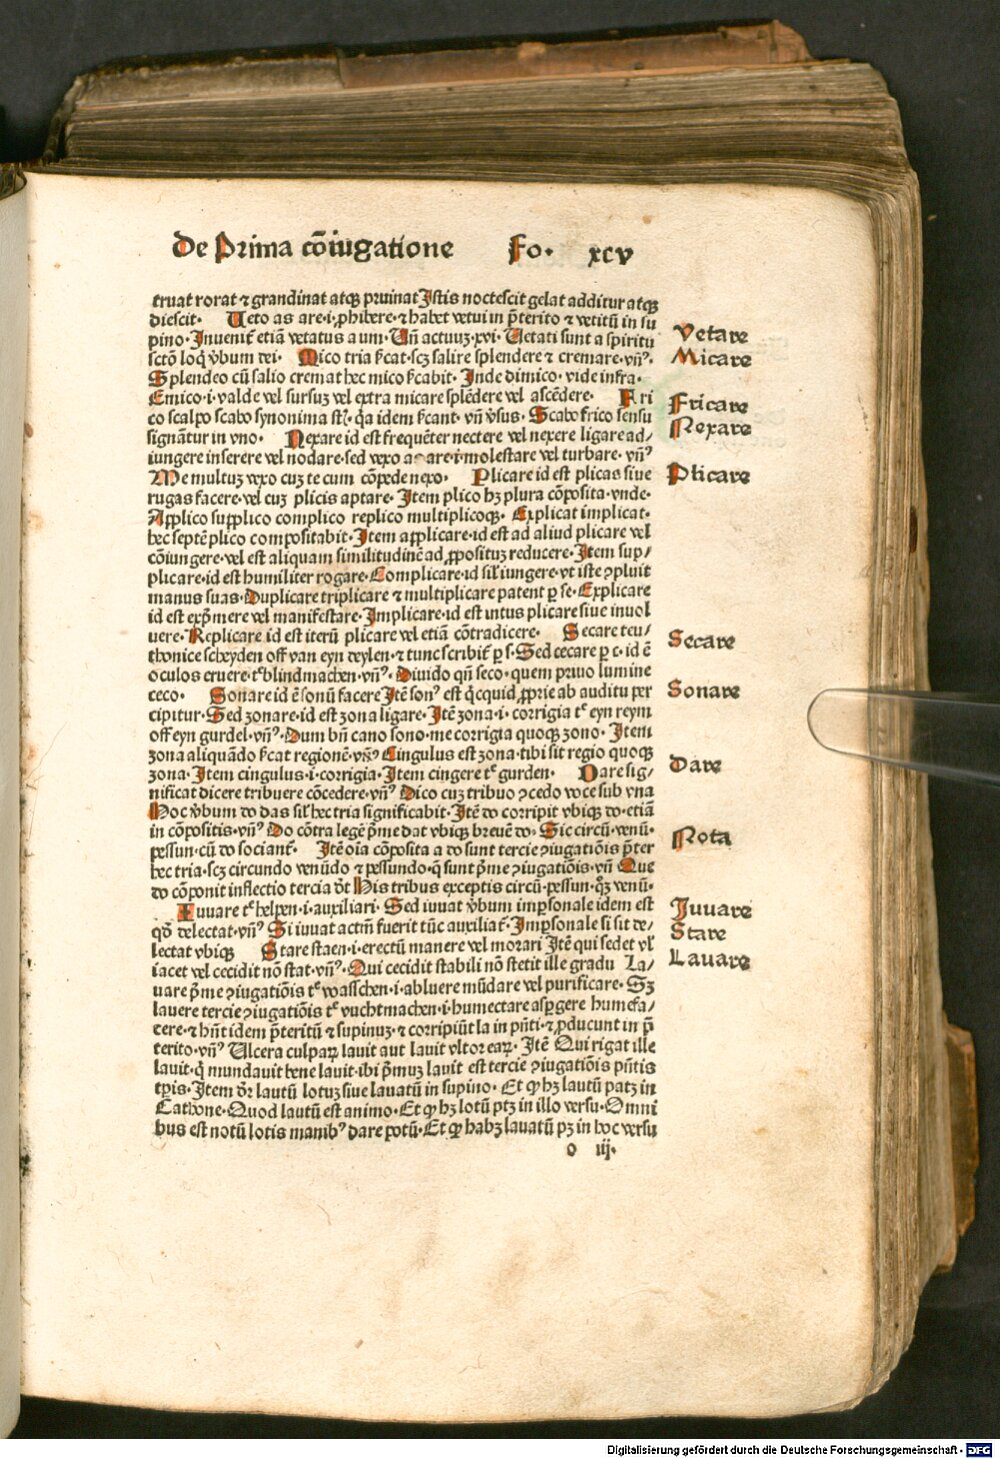 De Prima cōiugatione Fo. xcv
truat rorat ⁊ grandinat atqꝫ pruinat Istis noctescit gelat additur atqꝫ
diescit. Ueto as are .i. ꝓhibere. ⁊ habet vetui in p̄terito ⁊ vetitū in su
pino. Inuenit᷑ etiā vetatus a um. Uñ actuuꝫ .xvi. Uetati sunt a spiritu
sctō loq̇ v̄bum dei. Mico tria ſ̄cat. scꝫ salire splendere ⁊ cremare. vñ⁹.
Splendeo cū salio cremat hec mico ſ̄cabit. Inde dimico. vide infra.
Emico .i. valde vel sursuꝫ vel extra micare splēdere vel ascēdere. Fri
co scalpo scabo synonima st᷑. q̇a idem ſ̄cant. vñ v̄sus. Scabo frico sensu
signātur in vno. Nexare id est frequēter nectere vel nexere ligare ad/
iungere inserere vel nodare. sed vexo are .i. molestare vel turbare. vñ⁹
Me multuꝫ vexo cuꝫ te cum cōpede nexo. Plicare id est plicas siue
rugas facere. vel cuꝫ plicis aptare. Item plico hꝫ plura cōposita. vnde.
Applico supplico complico replico multiplicoqꝫ. Explicat implicat.
hec septē plico compositabit. Item applicare. id est ad aliud plicare vel
cōiungere. vel est aliquam similitudinē ad ꝓposituꝫ reducere. Item sup/
plicare. id est humiliter rogare. Complicare. id sil̄ iungere. vt iste ꝯpluit
manus suas. Duplicare triplicare ⁊ multiplicare patent ꝑ se. Explicare
id est exp̄mere vel manifestare. Implicare. id est intus plicare siue inuol
uere. Replicare id est iterū plicare vel etiā cōtradicere. Secare teu/
thonice scheyden off van eyn deylen. ⁊ tunc scribit᷑ ꝑ s. Sed cecare ꝑ c. id ē
oculos eruere. t᷑ blindmachen. vñ⁹. Diuido qñ seco. quem priuo lumine
ceco. Sonare id ē sonū facere Itē son⁹ est q̇cquid ꝓprie ab auditu per
cipitur. Sed zonare. id est zona ligare. Itē zona .i. corrigia t᷑ eyn reym
off eyn gurdel. vñ⁹. Dum bñ cano sono. me corrigia quoqꝫ zono. Item
zona aliquādo ſ̄cat regionē. vñ⁹ Cingulus est zona. tibi sit regio quoqꝫ
zona. Item cingulus .i. corrigia. Item cingere t᷑ gurden. Dare sig/
nificat dicere tribuere cōcedere. vñ⁹ Dico cuꝫ tribuo ꝯcedo voce sub vna
Hoc v̄bum do das sil̄ hec tria significabit. Itē do corripit vbiqꝫ do. etiā
in cōpositis. vñ⁹ Do cōtra legē p̄me dat vbiqꝫ breuē do. Sic circū. venū.
pessun. cū do sociant᷑. Itē oīa cōposita a do sunt tercie ꝯiugatiōis p̄ter
hec tria. scꝫ circundo venūdo ⁊ pessundo. q̄ sunt p̄me ꝯiugatiōis. vñ Que
do cōponit inflectio tercia d̄t His tribus exceptis circū. pessun. qꝫ venū.
Iuuare t᷑ helpen .i. auxiliari. Sed iuuat v̄bum imp̱sonale idem est
qd̄ delectat. vñ⁹. Si iuuat actm̄ fuerit tūc auxiliat᷑. Imp̱sonale si sit de/
lectat vbiqꝫ Stare staen .i. erectū manere vel morari Itē qui sedet vl̄
iacet vel cecidit nō stat. vñ⁹. Qui cecidit stabili nō stetit ille gradu La/
uare p̄me ꝯiugatiōis t᷑ wasschen .i. abluere mūdare vel purificare. Sꝫ
lauere tercie ꝯiugatiōis t᷑ vuchtmachen .i. humectare asp̱gere humefa/
cere. ⁊ hñt idem p̄teritū ⁊ supinuꝫ. ⁊ corripiūt la in p̄nti. ⁊ ꝓducunt in p̄
terito. vñ⁹ Ulcera culpaꝝ lauit aut lauit vltor eaꝝ. Itē Qui rigat ille
lauit. q̇ mundauit bene lauit. ibi p̄muꝫ lauit est tercie ꝯiugatiōis p̄ntis
tp̄is. Item d̄r lautū lotuꝫ siue lauatū in supino. Et ꝙ hꝫ lautū patꝫ in
Cathone. Quod lautū est animo. Et ꝙ hꝫ lotū ptꝫ in illo versu. Omni
bus est notū lotis manib⁹ dare potū. Et ꝙ habꝫ lauatū pꝫ in hoc versu
o iij.
Vetare
Micare
Fricare
Nexare
Plicare
Secare
Sonare
Dare
Nota
Juuare
Stare
Lauare
Digitalisierung gefördert durch die Deutsche Forschungsgemeinschaft - DFG